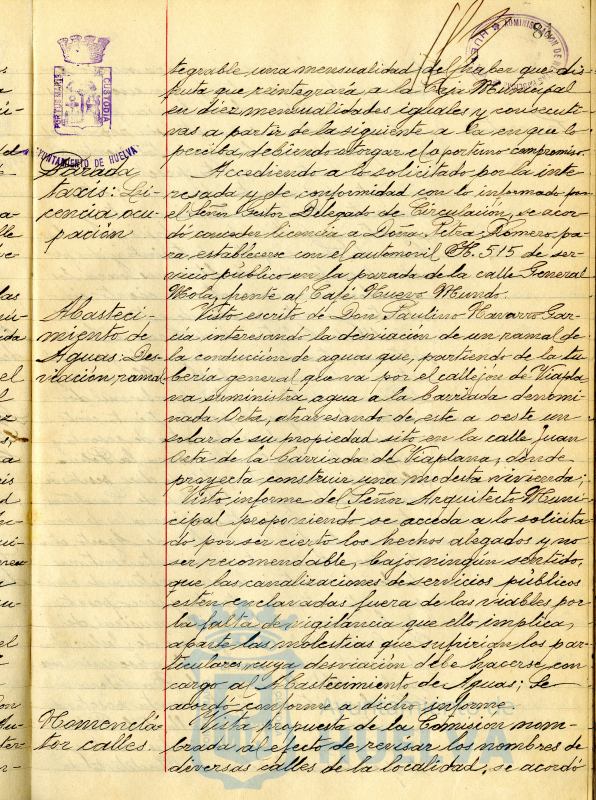 84
PORTUS MARIS ET TERRAE CUSTODIA
AYUNTAMIENTO DE HUELVA
tegrable una mensualidad del haber que dis-
fruta que reintegrará a la Caja Municipal
en diez mensualidades iguales y consecuti-
vas a partir de la siguiente a la en que lo
perciba, debiendo otorgar el oportuno compromiso.
Parada
taxis: Li-
cencia ocu-
pación
Accediendo a lo solicitado por la inte-
resada y de conformidad con lo informado por
el Señor Gestor Delegado de Circulación, se acor-
dó conceder licencia a Doña Petra Romero pa-
ra establecerse con el automóvil H. 515 de ser-
vicio público en la parada de la calle General
Mola, frente al Café Nuevo Mundo.
Abasteci-
miento de
Aguas: Des-
viación ramal
Visto escrito de Don Paulino Navarro Gar-
cía interesando la desviación de un ramal de
la conducción de aguas que, partiendo de la tu-
bería general que va por el callejón de Viapla-
na suministra agua a la barriada denomi-
nada Orta, atravesando de este a oeste un
solar de su propiedad sito en la calle Juan
Orta de la barriada de Viaplana, donde
proyecta construir una modesta vivienda;
Visto informe del Señor Arquitecto Muni-
cipal proponiendo se acceda a lo solicita-
do por ser cierto los hechos alegados y no
ser recomendable, bajo ningún sentido,
que las canalizaciones de servicios públicos
estén enclavadas fuera de las viables por
la falta de vigilancia que ello implica,
aparte las molestias que sufrirían los par-
ticulares, cuya desviación debe hacerse con
cargo al Abastecimiento de Aguas; Se
acordó conforme a dicho informe.
Nomenclá-
tor calles.
Vista propuesta de la Comisión nom-
brada al efecto de revisar los nombres de
diversas calles de la localidad, se acordó